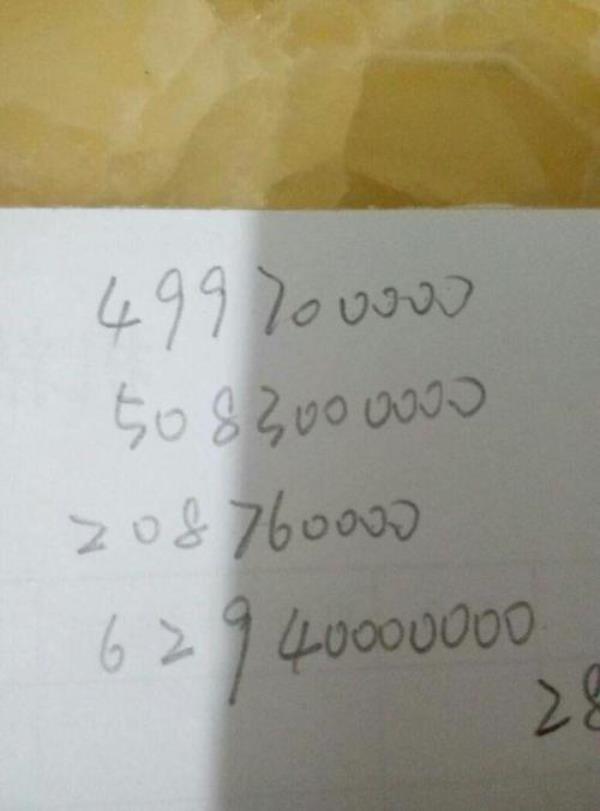 499700000
5083000000
208760000
62940000000
28